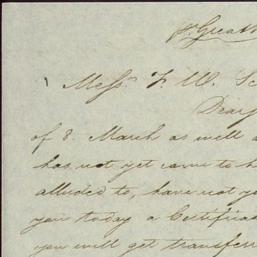 p. Great
Messrs F. W. Sc
Dear
of 8. March as well a
has not yet come to h
alluded to, have not y
you today a Certifica
you will get transferr